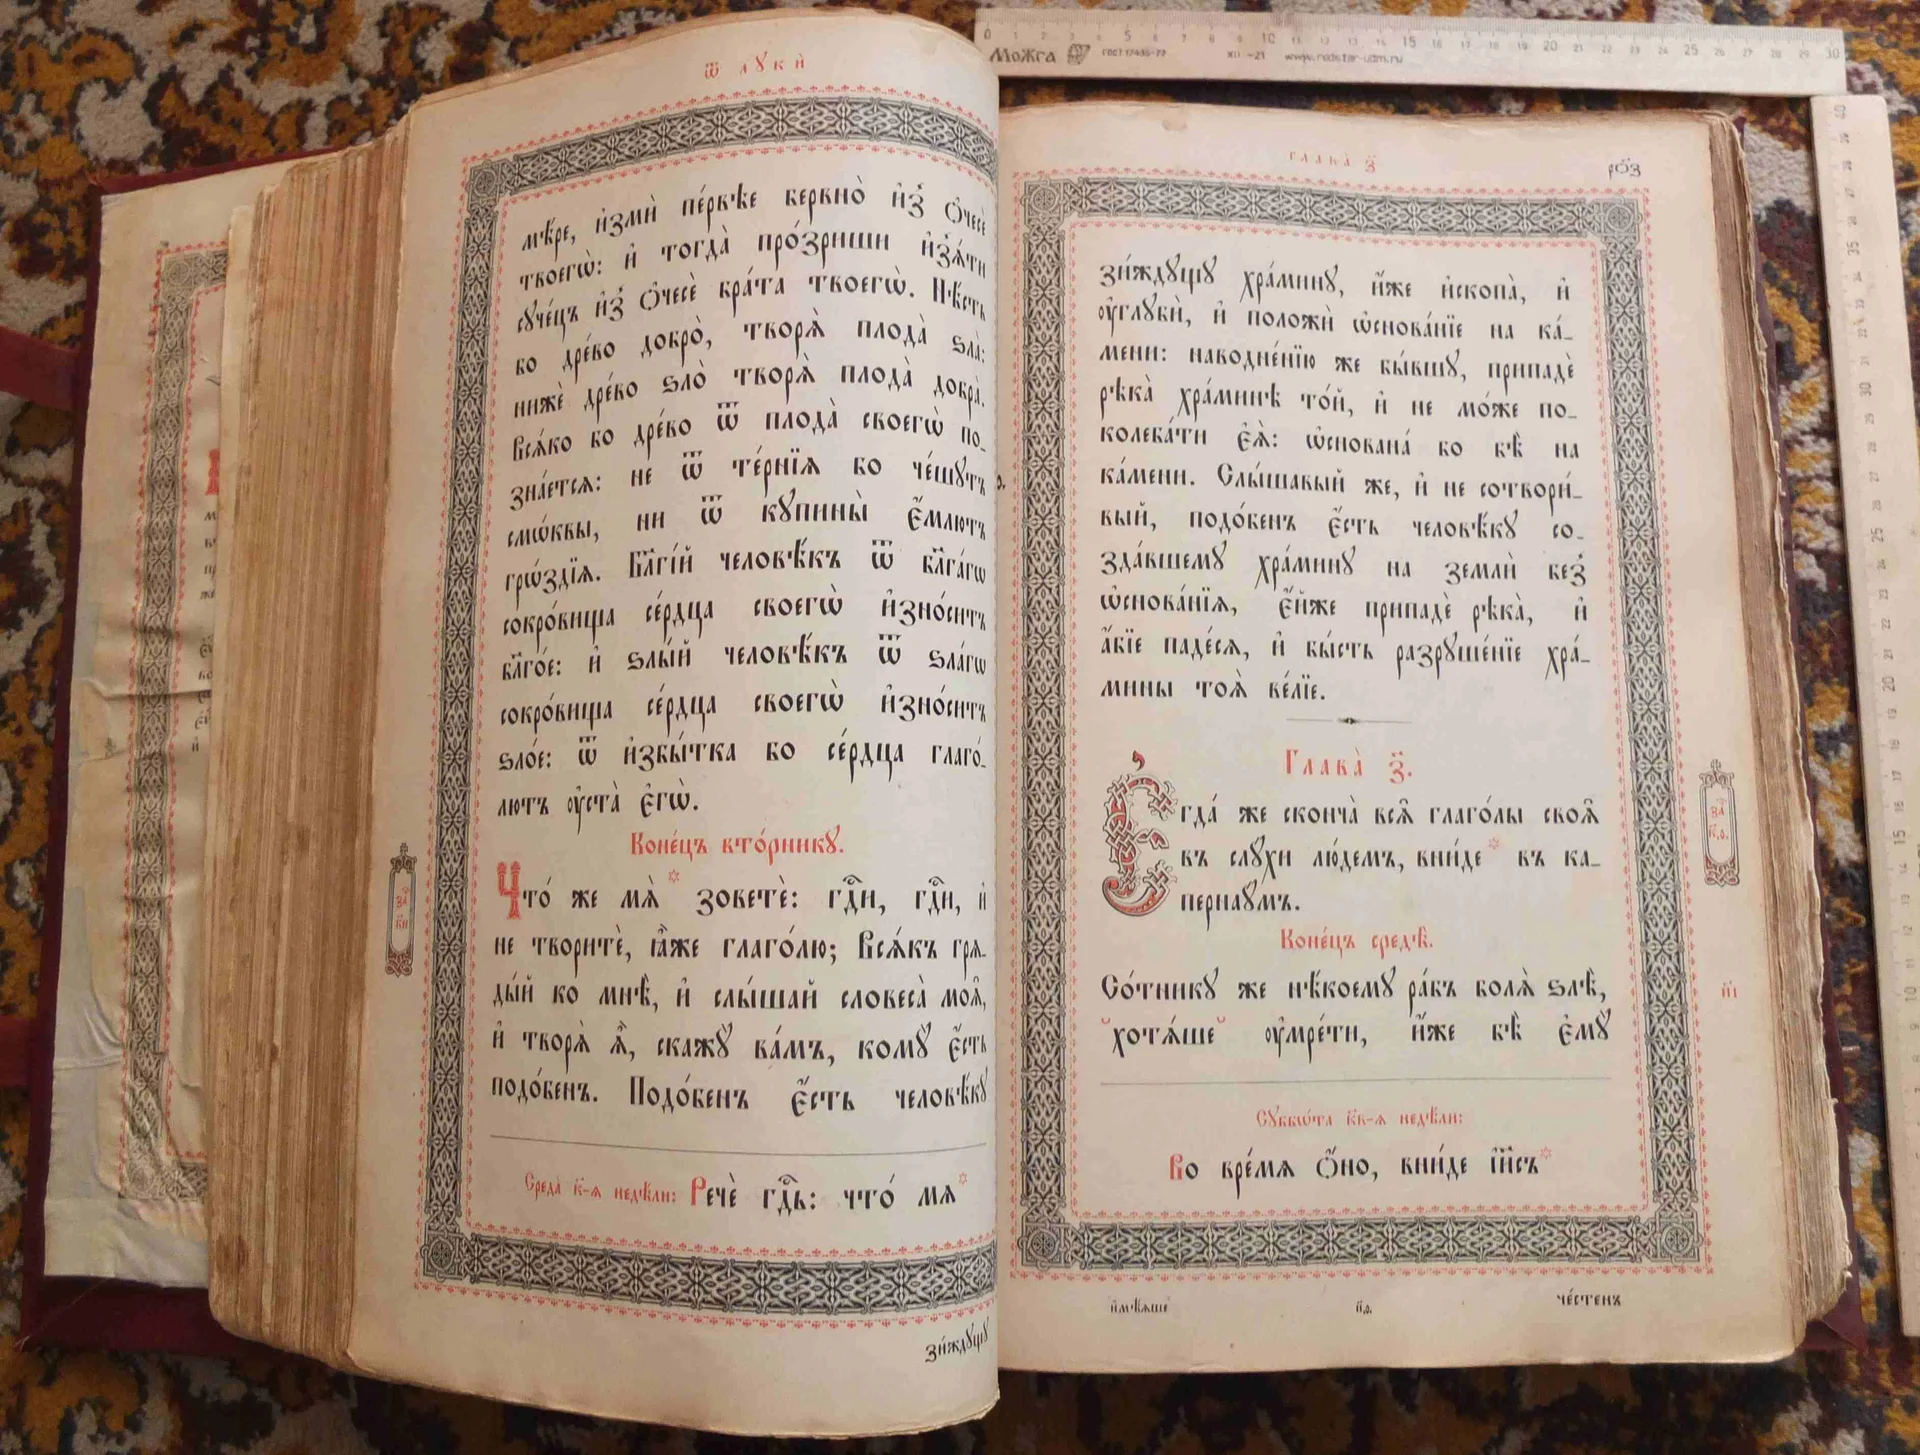 Ѿ лꙋкѝ
мѣ́ре, и҆змѝ пе́рвѣе бервно̀ и҆з̾ ѻ҆чесѐ
твоегѡ̀: и҆ тогда̀ про́зриши и҆з̾ѧ́ти
сꙋче́цъ и҆з̾ ѻ҆чесѐ бра́та твоегѡ̀. Нѣ́сть
бо дре́во добро̀, творѧ̀ плода̀ ѕла̀:
нижѐ дре́во ѕло̀ творѧ̀ плода̀ добра̀.
Всѧ́ко бо дре́во ѿ плода̀ своегѡ̀ по-
зна́етсѧ: не ѿ те́рнїѧ бо че́шꙋтъ
смѡ́квы, ни ѿ кꙋпины̀ є҆́млютъ
грѡ́здїѧ. Бл҃гі́й человѣ́къ ѿ бл҃га́гѡ
сокро́вища се́рдца своегѡ̀ и҆зно́ситъ
бл҃го́е: и҆ ѕлы́й человѣ́къ ѿ ѕла́гѡ
сокро́вища се́рдца своегѡ̀ и҆зно́ситъ
ѕло́е: ѿ и҆збы́тка бо се́рдца глаго́-
лютъ ѹ҆ста̀ є҆гѡ̀.
Коне́цъ вто́рникꙋ.
Что́ же мѧ̀ * зоветѐ: гдⷭ҇и, гдⷭ҇и, и҆
не творитѐ, ꙗ҆̀же глаго́лю; Всѧ́къ грѧ-
ды́й ко мнѣ̀, и҆ слы́шай словеса̀ моѧ̑,
и҆ творѧ̀ ѧ҆̀, скажꙋ̀ ва́мъ, комꙋ̀ є҆́сть
подо́бенъ. Подо́бенъ є҆́сть человѣ́кꙋ
за ч к҃и
Среда̀ к҃-ѧ недѣ́ли: Речѐ гдⷭ҇ь: что́ мѧ *
зи́ждꙋщꙋ
Глава̀ з҃.
ро҃з
зи́ждꙋщꙋ хра́минꙋ, и҆́же и҆скопа̀, и҆
ѹ҆глꙋбѝ, и҆ положѝ ѡ҆снова́нїе на ка́-
мени: наводне́нїю же бы́вшꙋ, припадѐ
рѣка̀ хра́минѣ то́й, и҆ не мо́же по-
колеба́ти є҆ѧ̀: ѡ҆снована́ бо бѣ̀ на
ка́мени. Слы́шавый же, и҆ не сотвори́-
вый, подо́бенъ є҆́сть человѣ́кꙋ со-
зда́вшемꙋ хра́минꙋ на землѝ без̾
ѡ҆снова́нїѧ, є҆́йже припадѐ рѣка̀, и҆
а҆́бїе паде́сѧ, и҆ бы́сть разрꙋше́нїе хра́-
мины тоѧ̀ ве́лїе.
Глава̀ з҃.
Егда́ же сконча̀ всѧ̑ глаго́лы своѧ̑
въ слꙋ́хи лю́демъ, вни́де * въ ка-
пернаꙋ́мъ.
Коне́цъ средѣ̀.
Со́тникꙋ же нѣ́коемꙋ ра́бъ болѧ̀ ѕлѣ̀,
хотѧ́ше ѹ҆мре́ти, и҆́же бѣ̀ є҆мꙋ̀
за ч к҃ѳ.
н҃і
Сꙋббѡ́та к҃к-ѧ недѣ́ли:
Во вре́мѧ ѻ҆́но, вни́де і҆и҃съ *
и҆мѣ́ѧше
че́стенъ
0 1 2 3 4 5 6 7 8 9 10 11 12 13 14 15 16 17 18 19 20 21 22 23 24 25 26 27 28 29 30
МоЖга ГОСТ 17435-77 XII -21 www.redstar-udm.ru